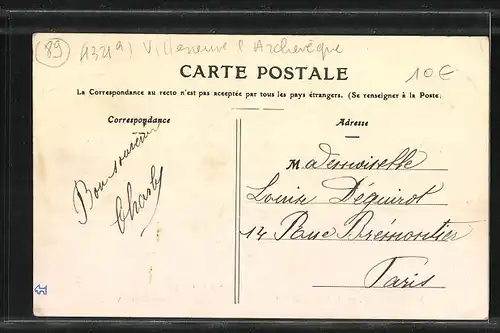 (89) 1321a) Villeneuve l'Archevêque
10€
CARTE POSTALE
La Correspondance au recto n'est pas acceptée par tous les pays étrangers. (Se renseigner à la Poste)
Correspondance
Adresse
Bon souvenir
Charles
Mademoiselle
Louise Déguirot
14 Rue Brémontier
Paris